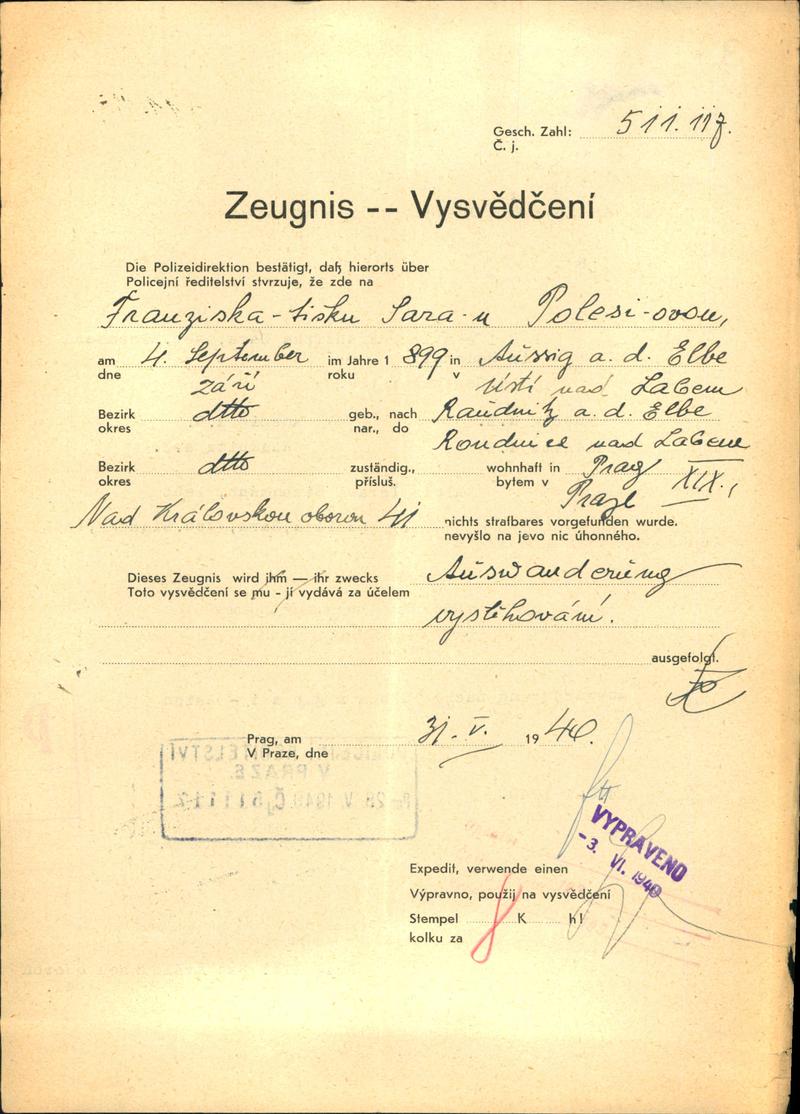 Gesch. Zahl: 511.117.
Č. j.
Zeugnis -- Vysvědčení
Die Polizeidirektion bestätigt, daß hierorts über
Policejní ředitelství stvrzuje, že zde na
Franziska-tišku Sara-u Polesi-ovou,
am 4. September im Jahre 1 899 in Aussig a. d. Elbe
dne září roku v Ústí nad Labem
Bezirk dtto geb., nach Raudnitz a. d. Elbe
okres nar., do Roudnice nad Labem
Bezirk dtto zuständig., wohnhaft in Prag XIX.,
okres přísluš. bytem v Praze
Nad Královskou oborou 41 nichts strafbares vorgefunden wurde.
nevyšlo na jevo nic úhonného.
Dieses Zeugnis wird ihm — ihr zwecks Auswanderung
Toto vysvědčení se mu - jí vydává za účelem
vystěhování.
ausgefolgt.
Prag, am 31. V. 1940.
V Praze, dne
V PRAZE
VYPRAVENO
-3. VI. 1940
Expedit, verwende einen
Výpravno, použij na vysvědčení
Stempel 8 K h!
kolku za